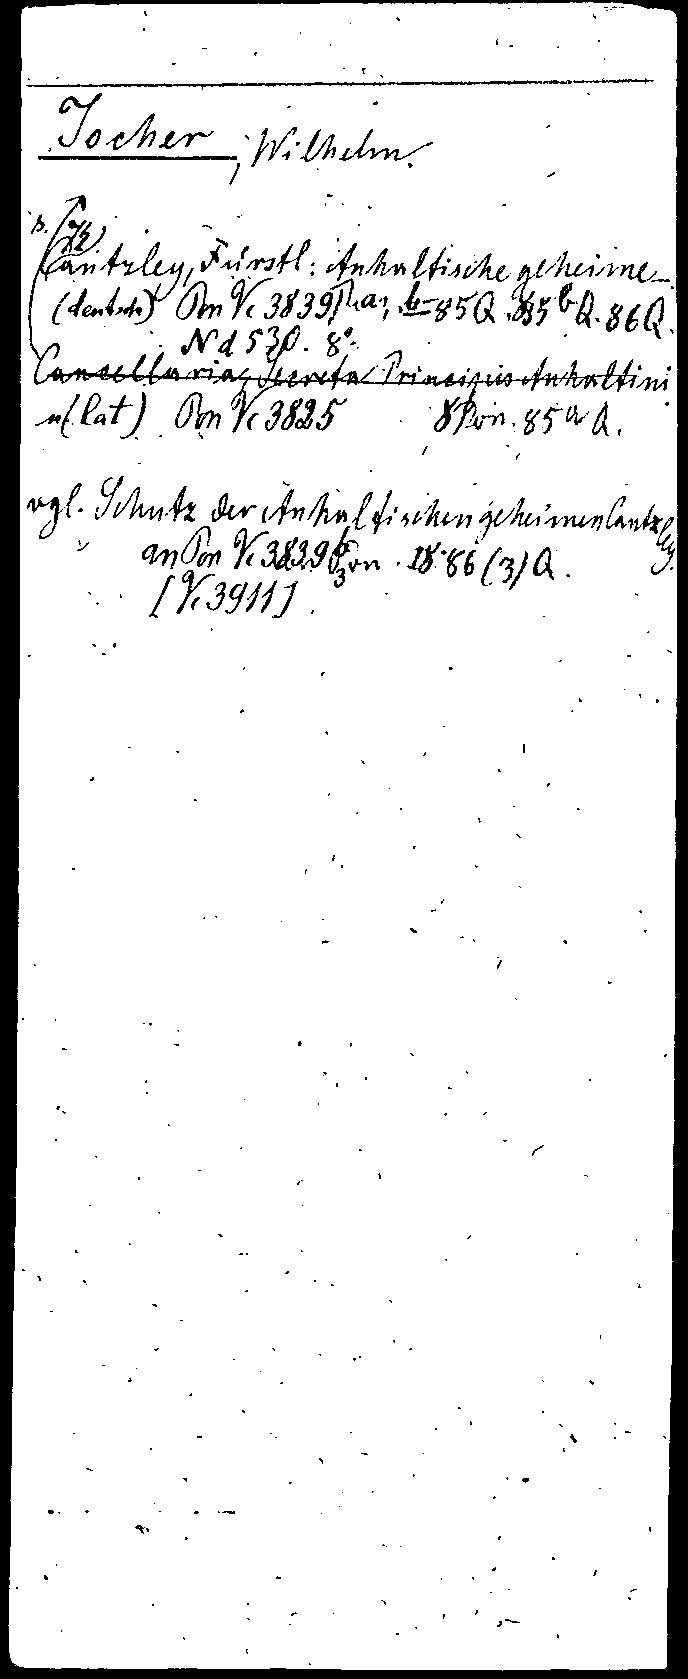 Jocher, Wilhelm.
s.
Cantzley, Fürstl: Anhaltische geheime
(deutsch) Pon Vc 3839, a, b 85Q. 85b Q. 86Q.
Nd 530. 8°.
Cancellaria Secreta Principis Anhaltini
u(lat) Pon Vc 3825 Pon. 85a Q.
vgl. Schutz der Anhaltischen geheimen Cantzley
an Pon Vc 3839 Pon. 86 (3) Q.
[Vc 3911]